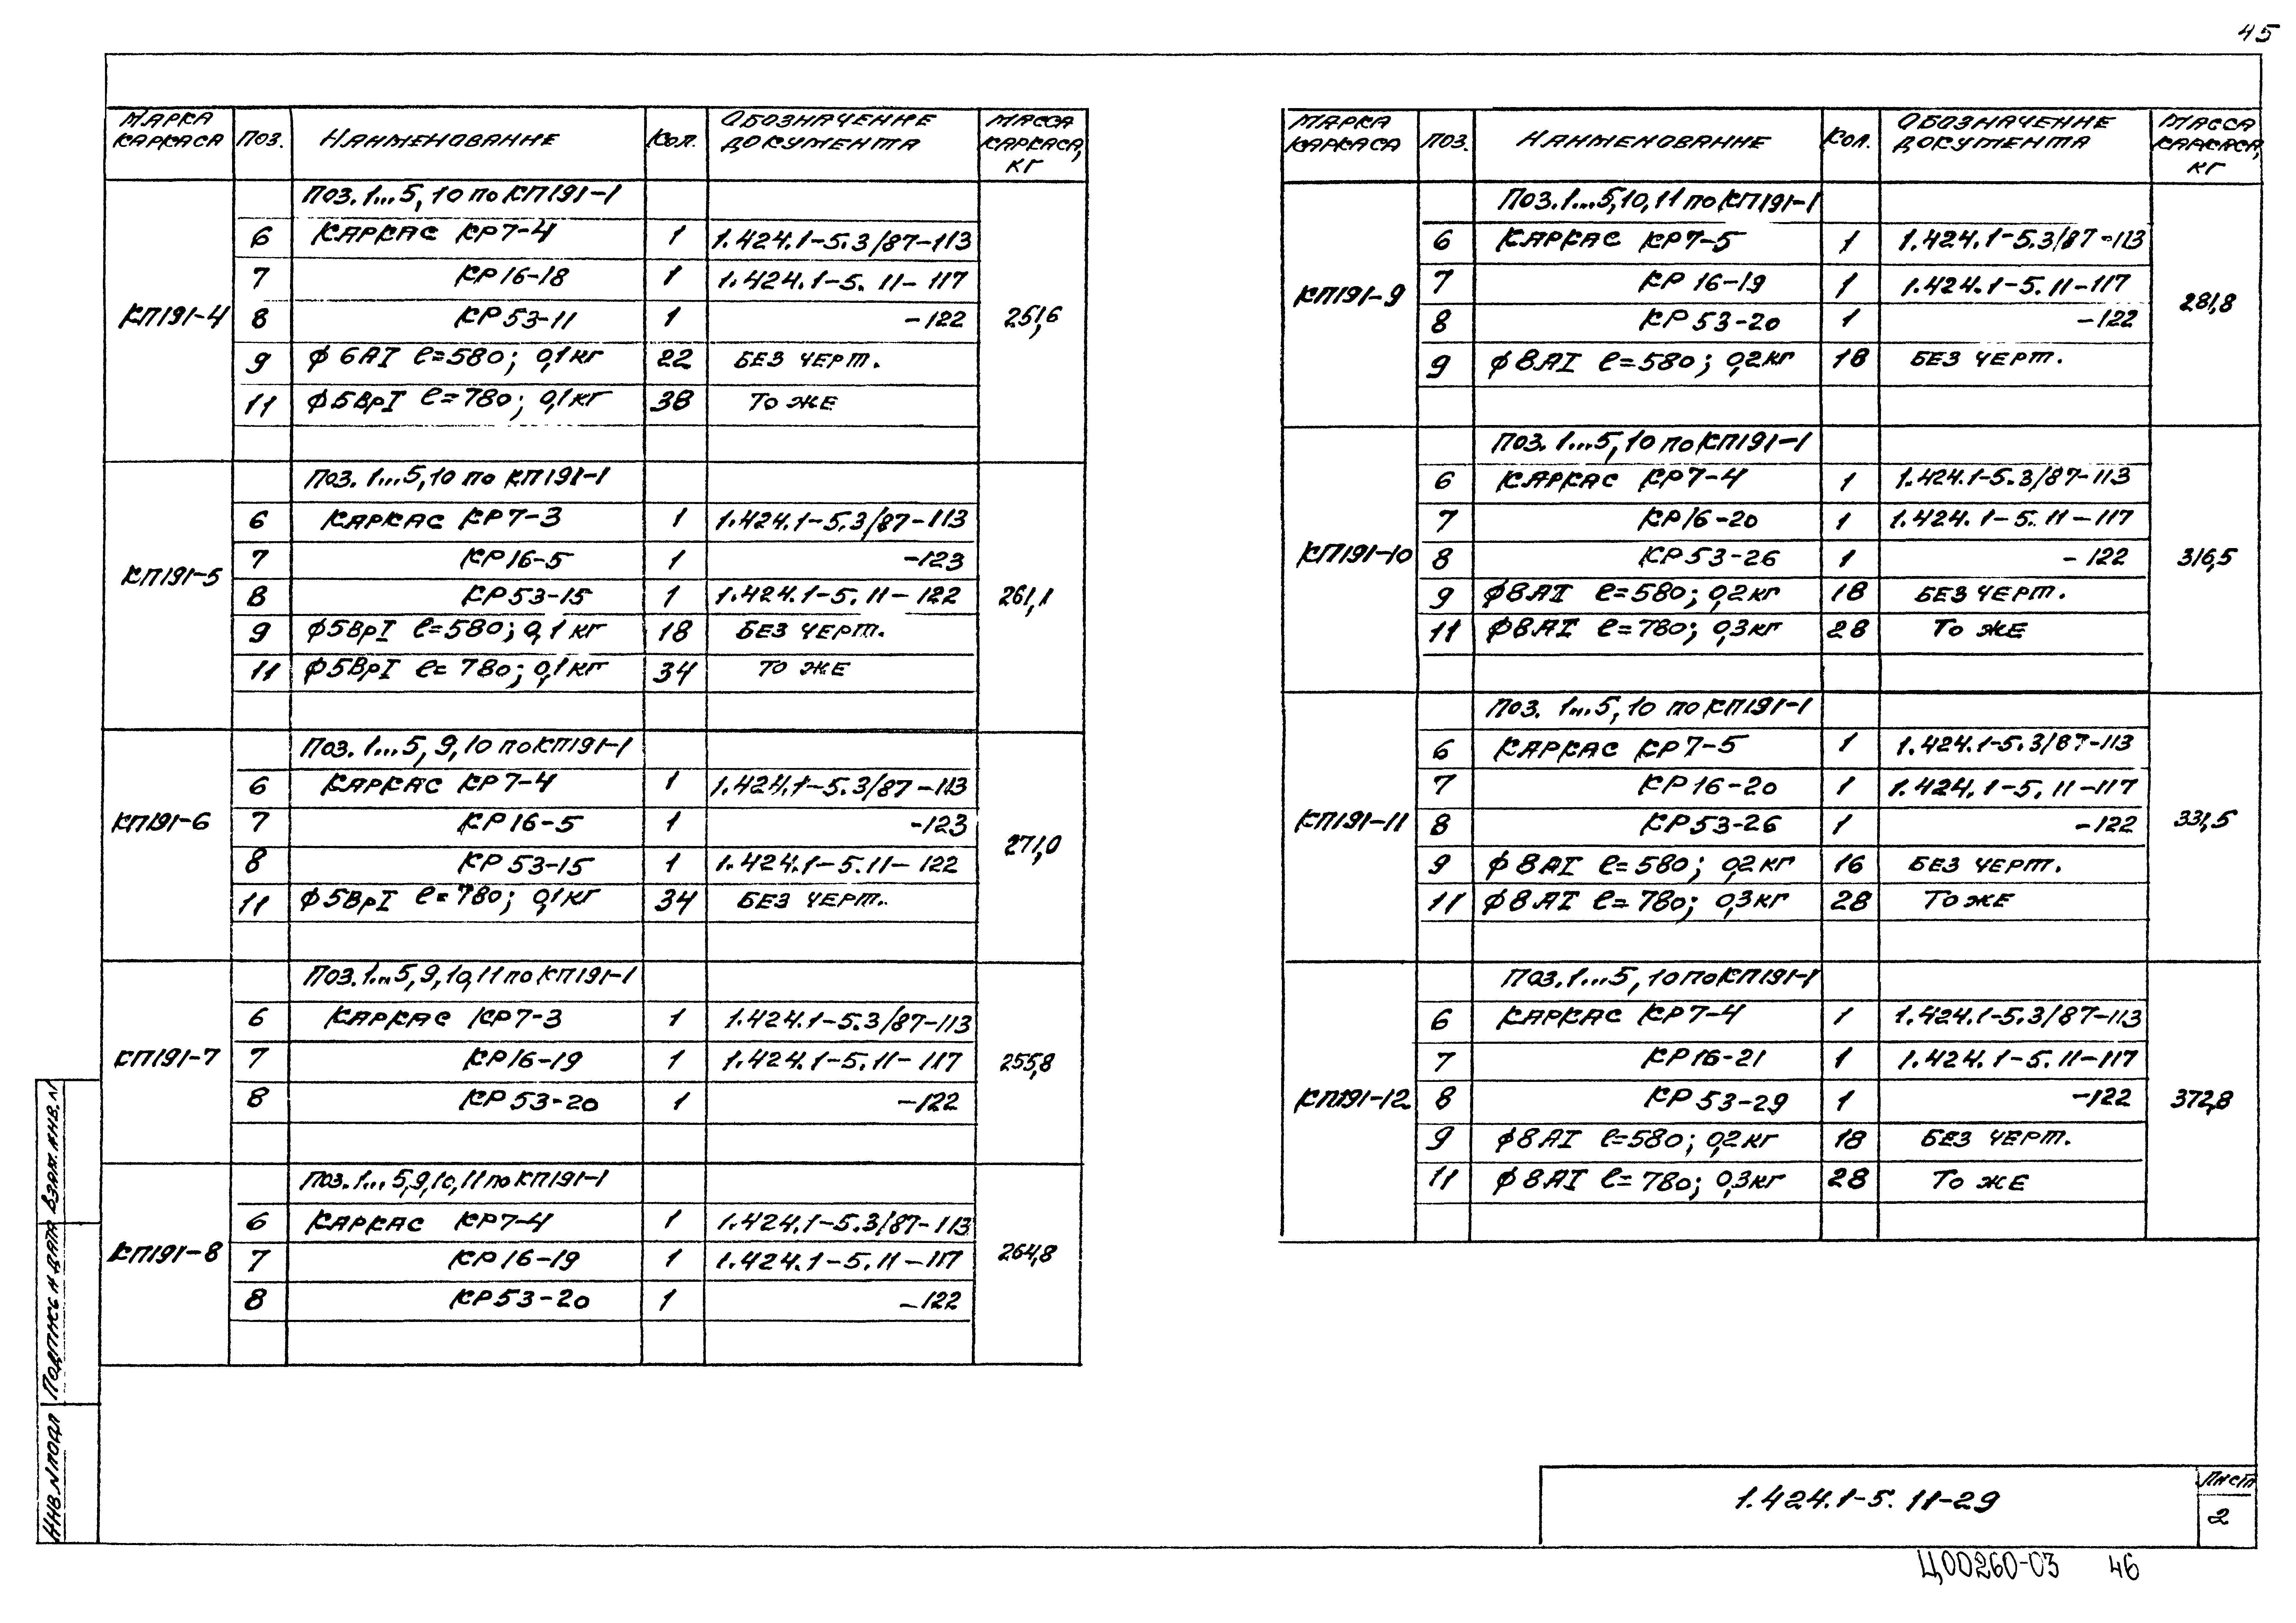 45
Марка каркаса Поз. Наименование Кол. Обозначение документа Масса каркаса, кг
Поз. 1...5, 10 по КП191-1
6 Каркас КР7-4 1 1.424.1-5.3/87-113
7 КР16-18 1 1.424.1-5.11-117
КП191-4 8 КР53-11 1 -122 251,6
9 ф6АI ℓ=580; 0,1кг 22 Без черт.
11 ф5ВрI ℓ=780; 0,1кг 38 То же
Поз. 1...5, 10 по КП191-1
6 Каркас КР7-3 1 1.424.1-5.3/87-113
7 КР16-5 1 -123
КП191-5 8 КР53-15 1 1.424.1-5.11-122 261,1
9 ф5ВрI ℓ=580; 0,1кг 18 Без черт.
11 ф5ВрI ℓ=780; 0,1кг 34 То же
Поз. 1...5, 9, 10 по КП191-1
6 Каркас КР7-4 1 1.424.1-5.3/87-113
КП191-6 7 КР16-5 1 -123 271,0
8 КР53-15 1 1.424.1-5.11-122
11 ф5ВрI ℓ=780; 0,1кг 34 Без черт.
Поз. 1...5, 9, 10, 11 по КП191-1
6 Каркас КР7-3 1 1.424.1-5.3/87-113
КП191-7 7 КР16-19 1 1.424.1-5.11-117 255,8
8 КР53-20 1 -122
Поз. 1...5, 9, 10, 11 по КП191-1
6 Каркас КР7-4 1 1.424.1-5.3/87-113
КП191-8 7 КР16-19 1 1.424.1-5.11-117 264,8
8 КР53-20 1 -122
Марка каркаса Поз. Наименование Кол. Обозначение документа Масса каркаса, кг
Поз. 1...5, 10, 11 по КП191-1
6 Каркас КР7-5 1 1.424.1-5.3/87-113
КП191-9 7 КР16-19 1 1.424.1-5.11-117 281,8
8 КР53-20 1 -122
9 ф8АI ℓ=580; 0,2кг 18 Без черт.
Поз. 1...5, 10 по КП191-1
6 Каркас КР7-4 1 1.424.1-5.3/87-113
7 КР16-20 1 1.424.1-5.11-117
КП191-10 8 КР53-26 1 -122 316,5
9 ф8АI ℓ=580; 0,2кг 18 Без черт.
11 ф8АI ℓ=780; 0,3кг 28 То же
Поз. 1...5, 10 по КП191-1
6 Каркас КР7-5 1 1.424.1-5.3/87-113
7 КР16-20 1 1.424.1-5.11-117
КП191-11 8 КР53-26 1 -122 331,5
9 ф8АI ℓ=580; 0,2кг 16 Без черт.
11 ф8АI ℓ=780; 0,3кг 28 То же
Поз. 1...5, 10 по КП191-1
6 Каркас КР7-4 1 1.424.1-5.3/87-113
7 КР16-21 1 1.424.1-5.11-117
КП191-12 8 КР53-29 1 -122 372,8
9 ф8АI ℓ=580; 0,2кг 18 Без черт.
11 ф8АI ℓ=780; 0,3кг 28 То же
Инв. N подл Подпись и дата Взам. инв. N
1.424.1-5.11-29
Лист
2
Ц00260-03 46